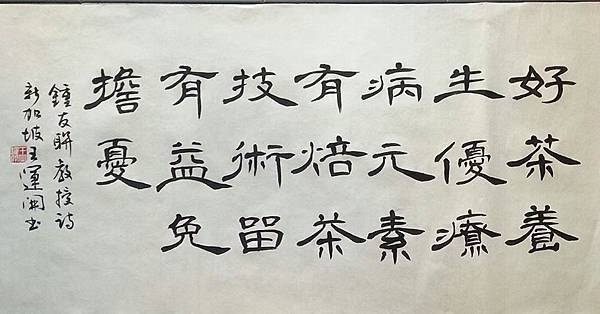 好茶養
生優療
病元素
有焙茶
技術留
有益免
擔憂
鍾友聯教授詩
新加坡王運開書